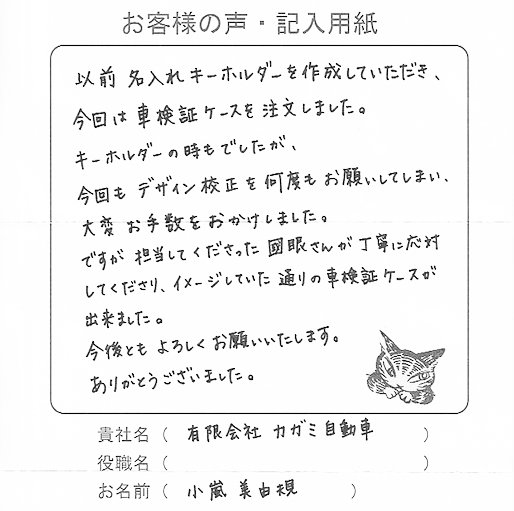 お客様の声・記入用紙
以前 名入れキーホルダーを作成していただき、
今回は車検証ケースを注文しました。
キーホルダーの時もでしたが、
今回も デザイン校正を何度もお願いしてしまい、
大変 お手数をおかけしました。
ですが 担当してくださった 國眼さんが丁寧に応対
してくださり、イメージしていた 通りの車検証ケースが
出来ました。
今後とも よろしくお願いいたします。
ありがとうございました。
貴社名（ 有限会社 カガミ自動車 ）
役職名（ ）
お名前（ 小嵐 美由規 ）